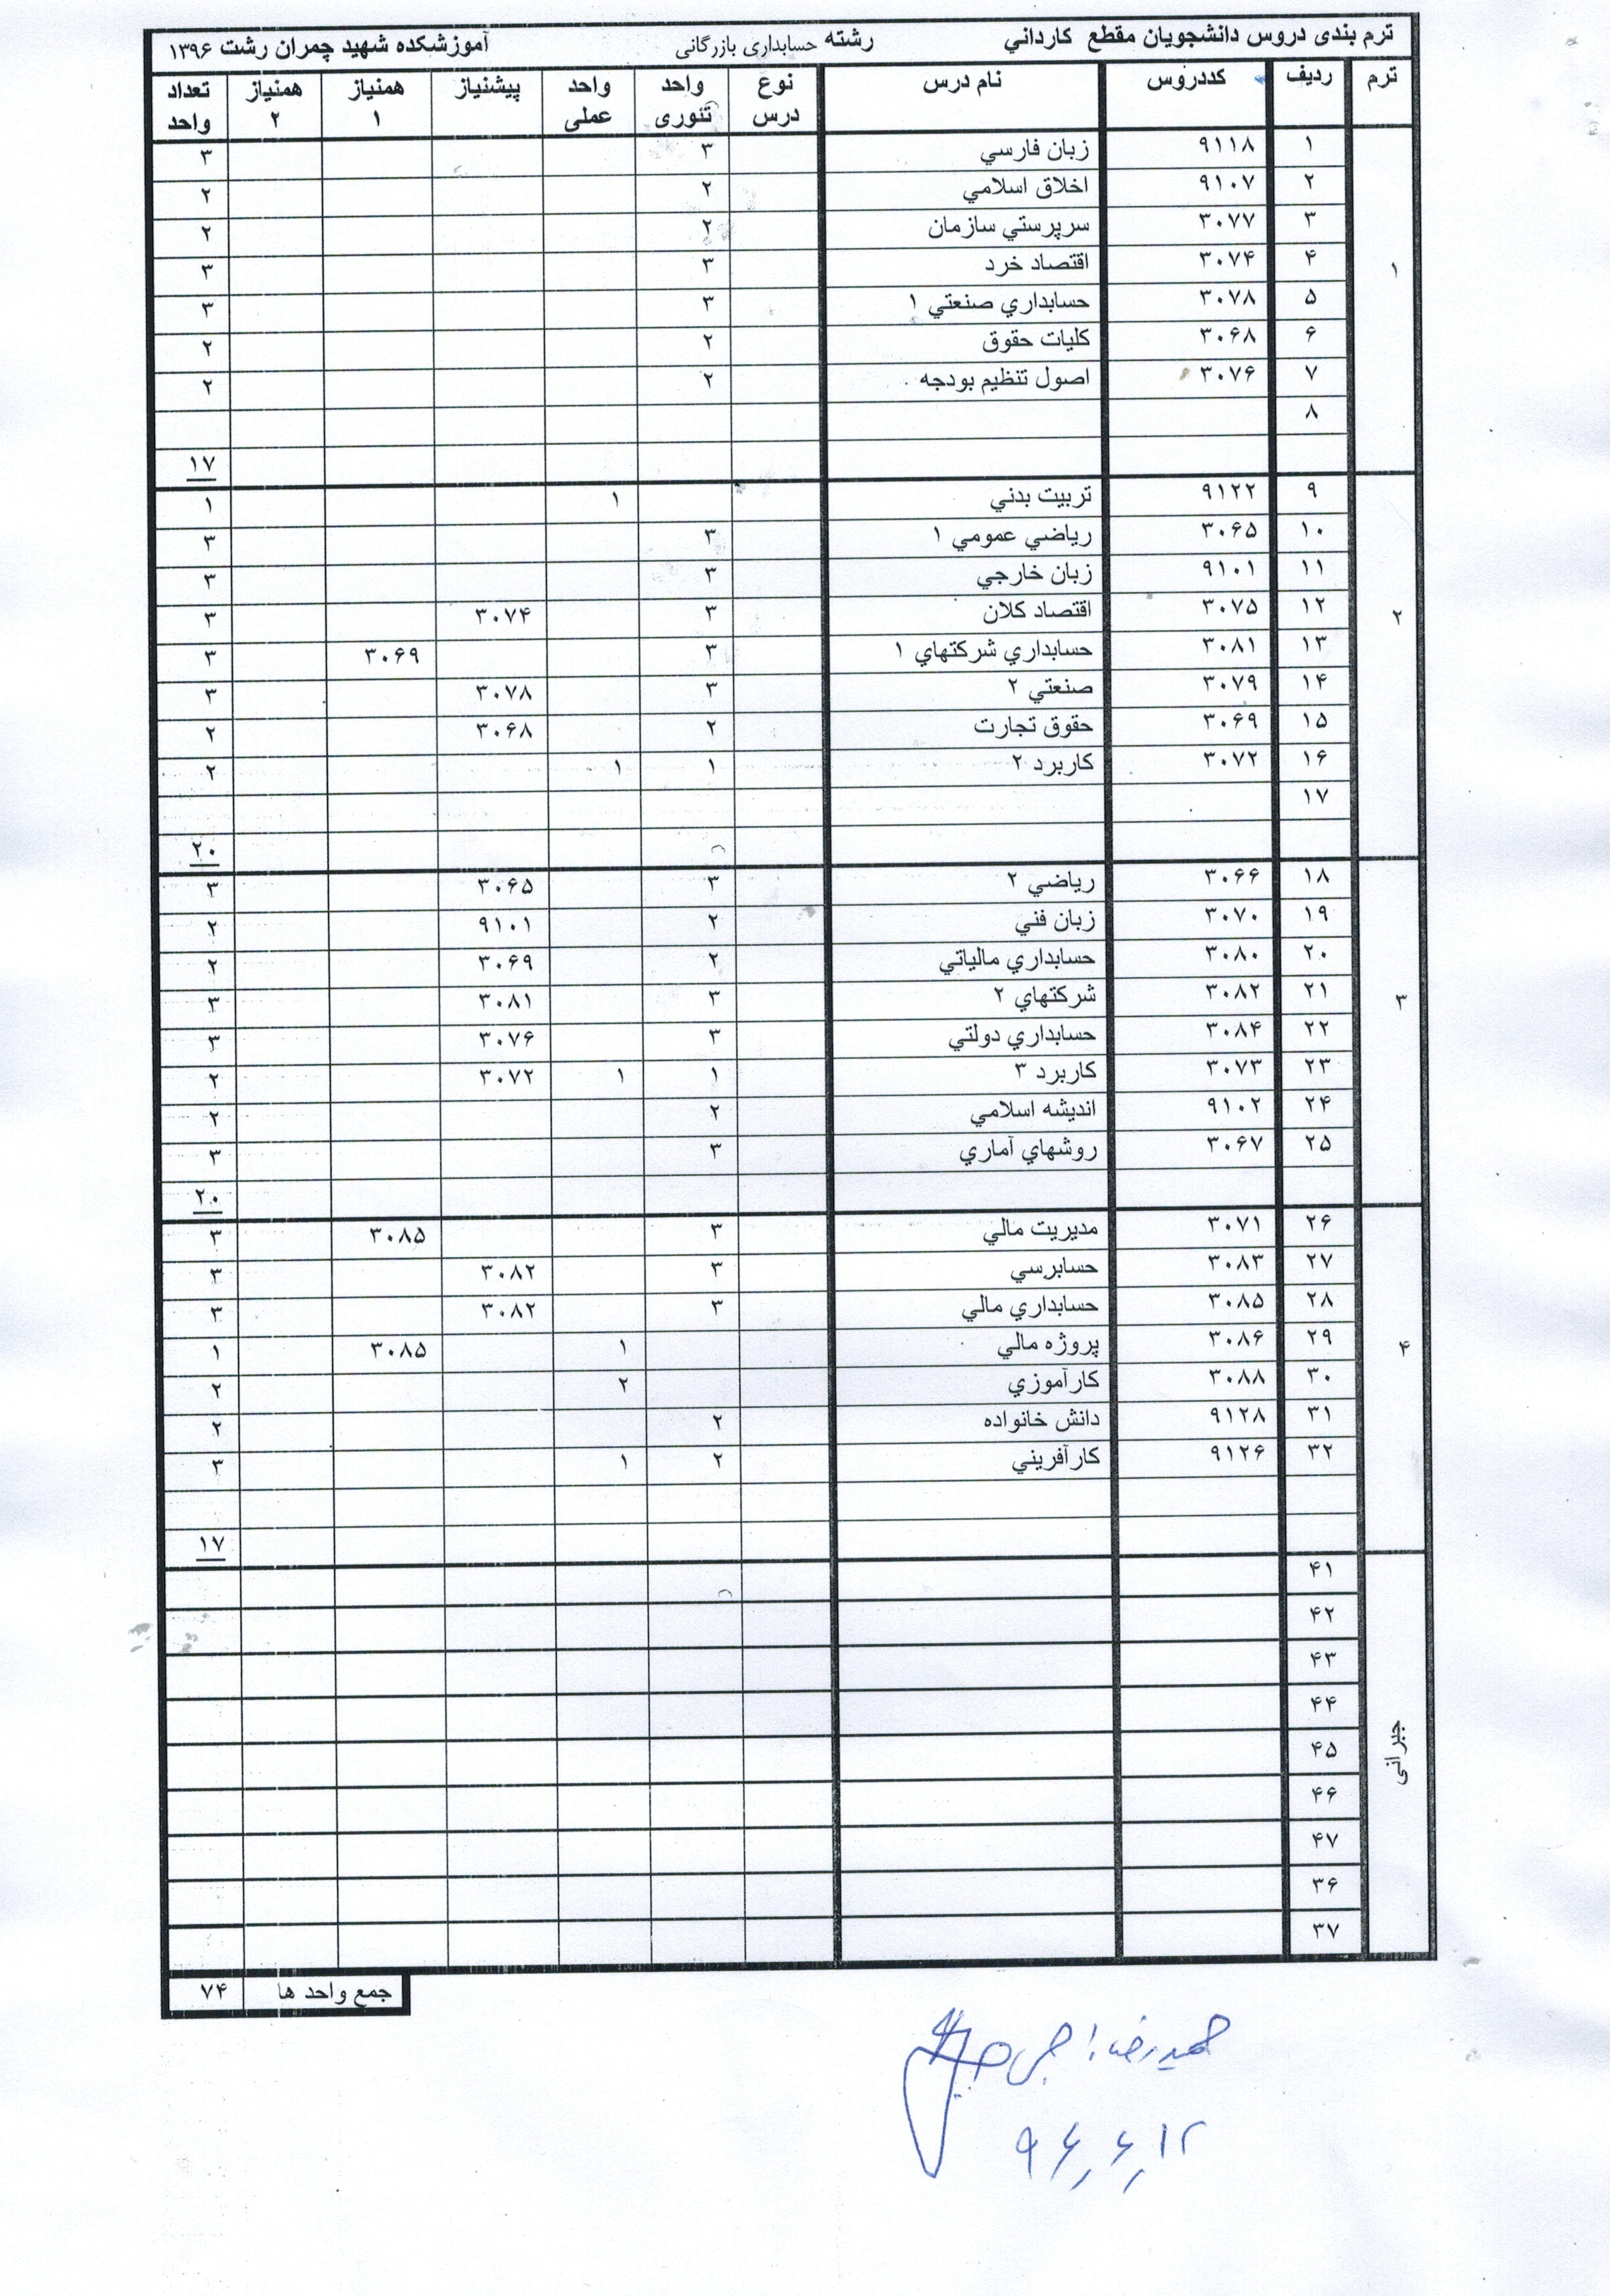 ترم بندی دروس دانشجویان مقطع کارداني رشته حسابداری بازرگانی آموزشکده شهید چمران رشت ۱۳۹۶
ترم ردیف کددروس نام درس نوع درس واحد تئوری واحد عملی پیشنیاز همنیاز ۱ همنیاز ۲ تعداد واحد
۱
۱ ۹۱۱۸ زبان فارسي ۳ ۳
۲ ۹۱۰۷ اخلاق اسلامي ۲ ۲
۳ ۳۰۷۷ سرپرستي سازمان ۲ ۲
۴ ۳۰۷۴ اقتصاد خرد ۳ ۳
۵ ۳۰۷۸ حسابداري صنعتي ۱ ۳ ۳
۶ ۳۰۶۸ كليات حقوق ۲ ۲
۷ ۳۰۷۶ اصول تنظيم بودجه ۲ ۲
۸
۱۷
۲
۹ ۹۱۲۲ تربيت بدني ۱ ۱
۱۰ ۳۰۶۵ رياضي عمومي ۱ ۳ ۳
۱۱ ۹۱۰۱ زبان خارجي ۳ ۳
۱۲ ۳۰۷۵ اقتصاد كلان ۳ ۳۰۷۴ ۳
۱۳ ۳۰۸۱ حسابداري شركتهاي ۱ ۳ ۳۰۶۹ ۳
۱۴ ۳۰۷۹ صنعتي ۲ ۳ ۳۰۷۸ ۳
۱۵ ۳۰۶۹ حقوق تجارت ۲ ۳۰۶۸ ۲
۱۶ ۳۰۷۲ كاربرد ۲ ۱ ۱ ۲
۱۷
۲۰
۳
۱۸ ۳۰۶۶ رياضي ۲ ۳ ۳۰۶۵ ۳
۱۹ ۳۰۷۰ زبان فني ۲ ۹۱۰۱ ۲
۲۰ ۳۰۸۰ حسابداري مالياتي ۲ ۳۰۶۹ ۲
۲۱ ۳۰۸۲ شركتهاي ۲ ۳ ۳۰۸۱ ۳
۲۲ ۳۰۸۴ حسابداري دولتي ۳ ۳۰۷۶ ۳
۲۳ ۳۰۷۳ كاربرد ۳ ۱ ۱ ۳۰۷۲ ۲
۲۴ ۹۱۰۲ انديشه اسلامي ۲ ۲
۲۵ ۳۰۶۷ روشهاي آماري ۳ ۳
۲۰
۴
۲۶ ۳۰۷۱ مديريت مالي ۳ ۳۰۸۵ ۳
۲۷ ۳۰۸۳ حسابرسي ۳ ۳۰۸۲ ۳
۲۸ ۳۰۸۵ حسابداري مالي ۳ ۳۰۸۲ ۳
۲۹ ۳۰۸۶ پروژه مالي ۱ ۳۰۸۵ ۱
۳۰ ۳۰۸۸ كارآموزي ۲ ۲
۳۱ ۹۱۲۸ دانش خانواده ۲ ۲
۳۲ ۹۱۲۶ كارآفريني ۲ ۱ ۳
۱۷
جبرانی
۴۱
۴۲
۴۳
۴۴
۴۵
۴۶
۴۷
۳۶
۳۷
جمع واحد ها ۷۴
حمیدرضا
۹۶٫۶٫۱۲